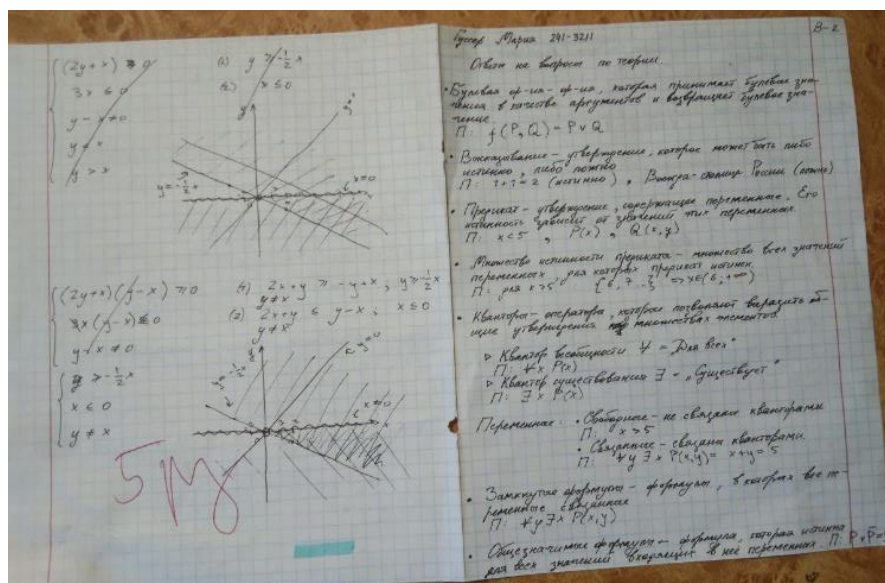 (2y+x) ≥ 0
3x ≤ 0
y-x≠0
y≠x
y > x
(1) y ≥ -1/2x
(2) x ≤ 0
y
y=x
x=0
(2y+x)(y-x) ≥ 0
3x(y-x) ≤ 0
y-x ≠ 0
y ≥ -1/2x
x ≤ 0
y ≠ x
(1) 2x+y ≥ -y+x; y ≥ -1/2x
y≠x
(2) 2x+y ≤ y-x; x ≤ 0
y≠x
y
x=0
5
Мария 241-3211
В-2
Ответ на вопросы по теории.
• Булевая ф-ия- ф-ия, которая принимает булевые зна-
чения в качестве аргументов и возвращает булевое зна-
чение
П: f(P,Q) = P∨Q
• Высказывание - утверждение, которое может быть либо
истинно, либо ложно
П: 1+1=2 (истинно), столица России (ложно)
• Предикат - утверждение, содержащее переменные. Его
истинность зависит от значений этих переменных
П: x<5, P(x), Q(x,y)
• Множество истинности предиката - множество всех значений
переменных, для которых предикат истинен.
П: для x>5 {6,7...}
• Кванторы- операторы, которые позволяют выразить об-
щие утверждения множествах элементов
▷ Квантор всеобщности ∀ - "Для всех"
П: ∀x P(x)
▷ Квантор существования ∃ - "Существует"
П: ∃x P(x)
Переменные: • Свободные - не связаны кванторами
П: x>5
• Связанные - связаны кванторами
П: ∀y ∃x P(x,y) = x+y = 5
• Замкнутые формулы - формулы, в которых все пе-
ременные связанные
П: ∀y∃x P(x,y)
• Общезначимые формулы - формула, которая истинна
для всех значений входящих в неё переменных. П: